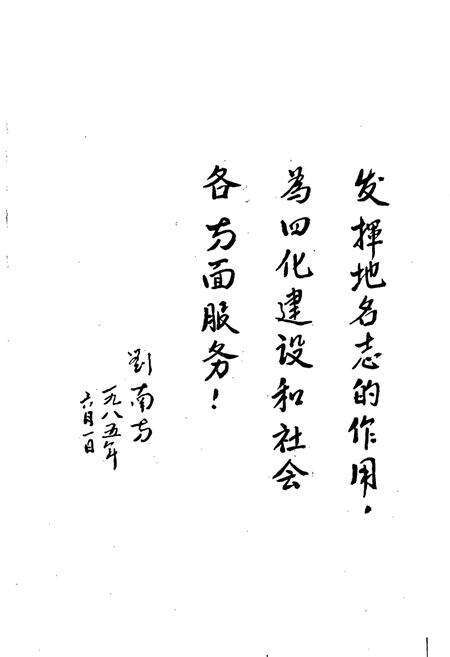 发揮地名志的作用，
為四化建设和社会
各方面服务！
劉南方
一九八五年
六月一日